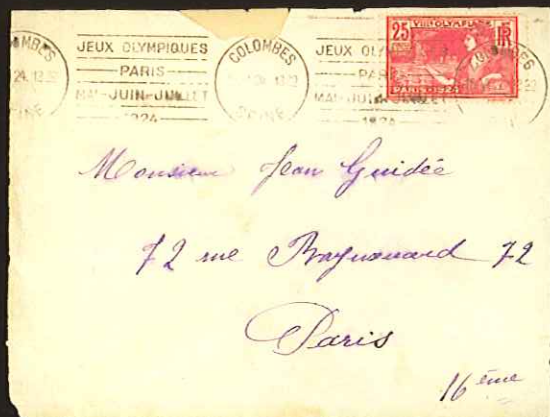 JEUX OLYMPIQUES
PARIS
MAI-JUIN-JUILLET
1924
COLOMBES
SEINE
JEUX
PARIS
MAI-JUIN-JUILLET
1924
25 VIIIE OLYMPIADE RF
PARIS-1924
Monsieur Jean Guidée
72 rue Raynouard 72
Paris
16ème